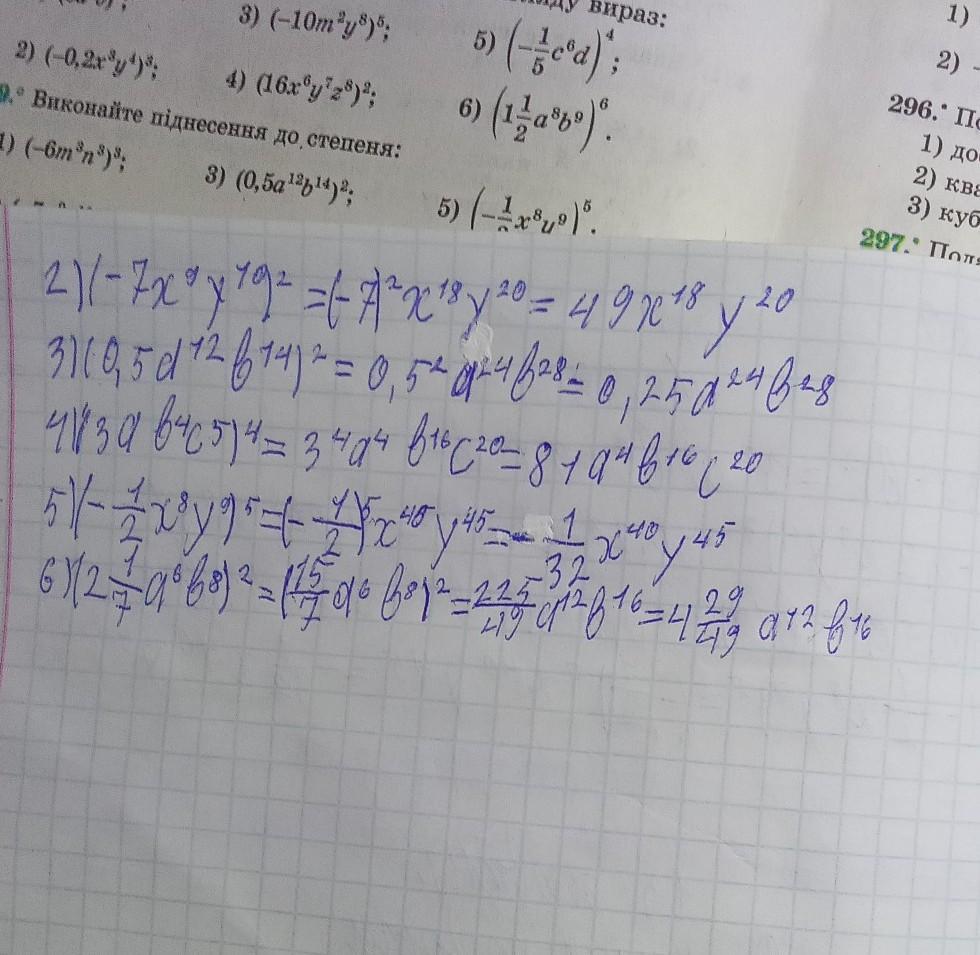 ду вираз:
3) (−10m²y⁸)⁵;
5) (−1/5 c⁶d)⁴;
1)
2) (−0,2x³y⁴)³;
4) (16x⁶y⁷z⁸)²;
6) (1 1/2 a⁸b⁹)⁶.
2) -
9.° Виконайте піднесення до степеня:
296.• По
1) (−6m³n³)³;
3) (0,5a¹²b¹⁴)²;
5) (−1/ x⁸y⁹)⁵.
1) до
2) ква
3) куб
297.• Пода
2) (-7x⁹y¹⁰)² = (-7)²x¹⁸y²⁰ = 49x¹⁸y²⁰
3) (0,5a¹²b¹⁴)² = 0,5²a²⁴b²⁸ = 0,25a²⁴b²⁸
4) (3ab⁴c⁵)⁴ = 3⁴a⁴b¹⁶c²⁰ = 81a⁴b¹⁶c²⁰
5) (-1/2 x⁸y⁹)⁵ = (-1/2)⁵x⁴⁰y⁴⁵ = -1/32 x⁴⁰y⁴⁵
6) (2 1/7 a⁶b⁸)² = (15/7 a⁶b⁸)² = 225/49 a¹²b¹⁶ = 4 29/49 a¹²b¹⁶